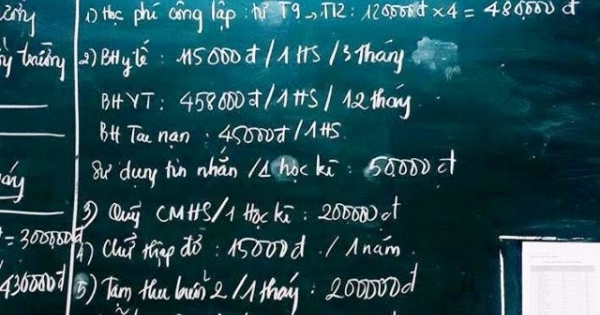 ường
trường
1) Học phí công lập : từ T9 → T12 : 120000đ × 4 = 480000 đ
2) BH y tế : 115000đ / 1 HS / 3 tháng
BHYT : 458000đ / 1HS / 12 tháng
BH Tai nạn : 45000đ / 1HS.
Sử dụng tin nhắn / 1 học kì : 50000 đ
3) Quỹ CMHS / 1 Học kì : 200000đ
= 300000đ
4) Chữ thập đỏ : 15000đ / 1 năm
430000đ
5) Tạm thu buổi 2 / 1 tháy : 200000đ